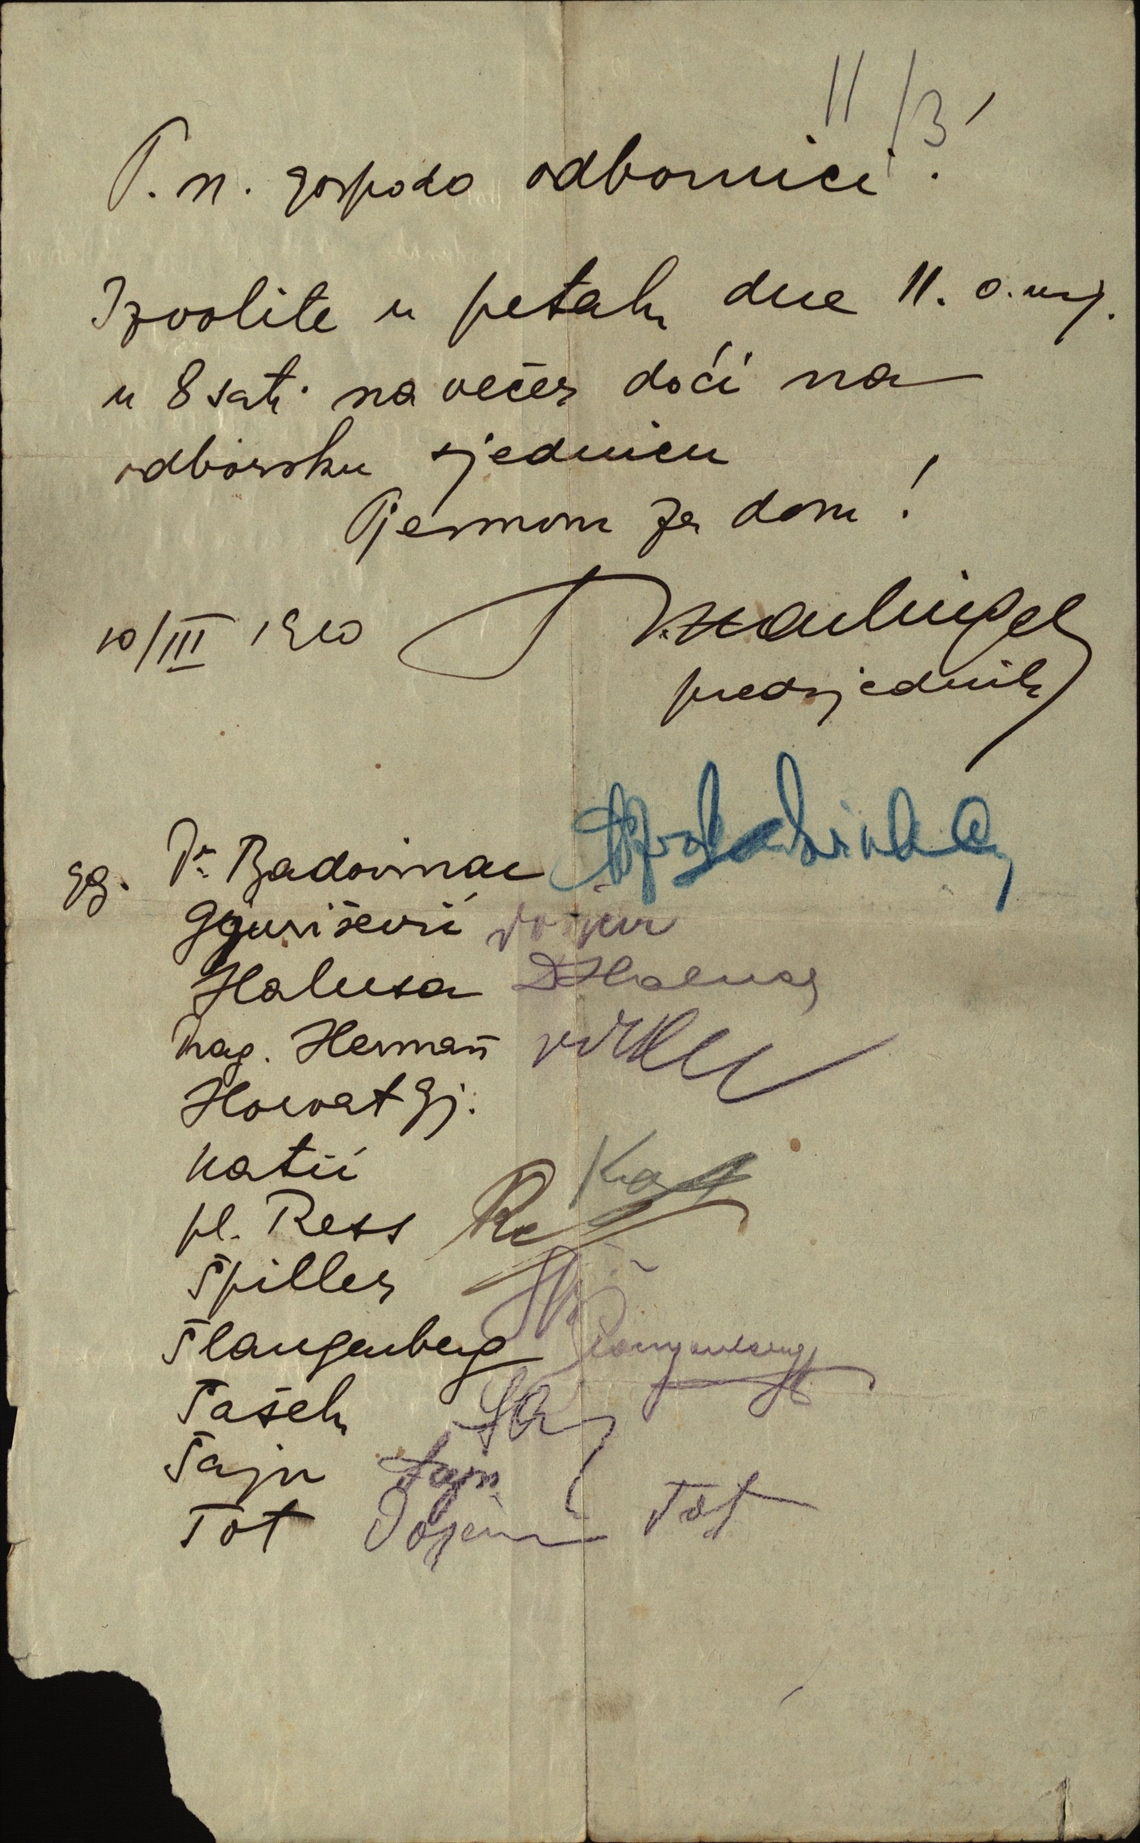 11/3
P. n. gospodo odbornici!
Izvolite u petak dne 11. o. mj.
u 8 sati na večer doći na
odborsku sjednicu
Pjesmom za dom!
10/III 1910
predsjednik
gg. Dr Badovinac
Gjurišević
Halusa DHalusa
Mag. Hermañ
Horvat Gj.
Katić
pl. Ress
Špiller
Šlangenberg Slangenberg
Tašek
Taju
Tot Tot